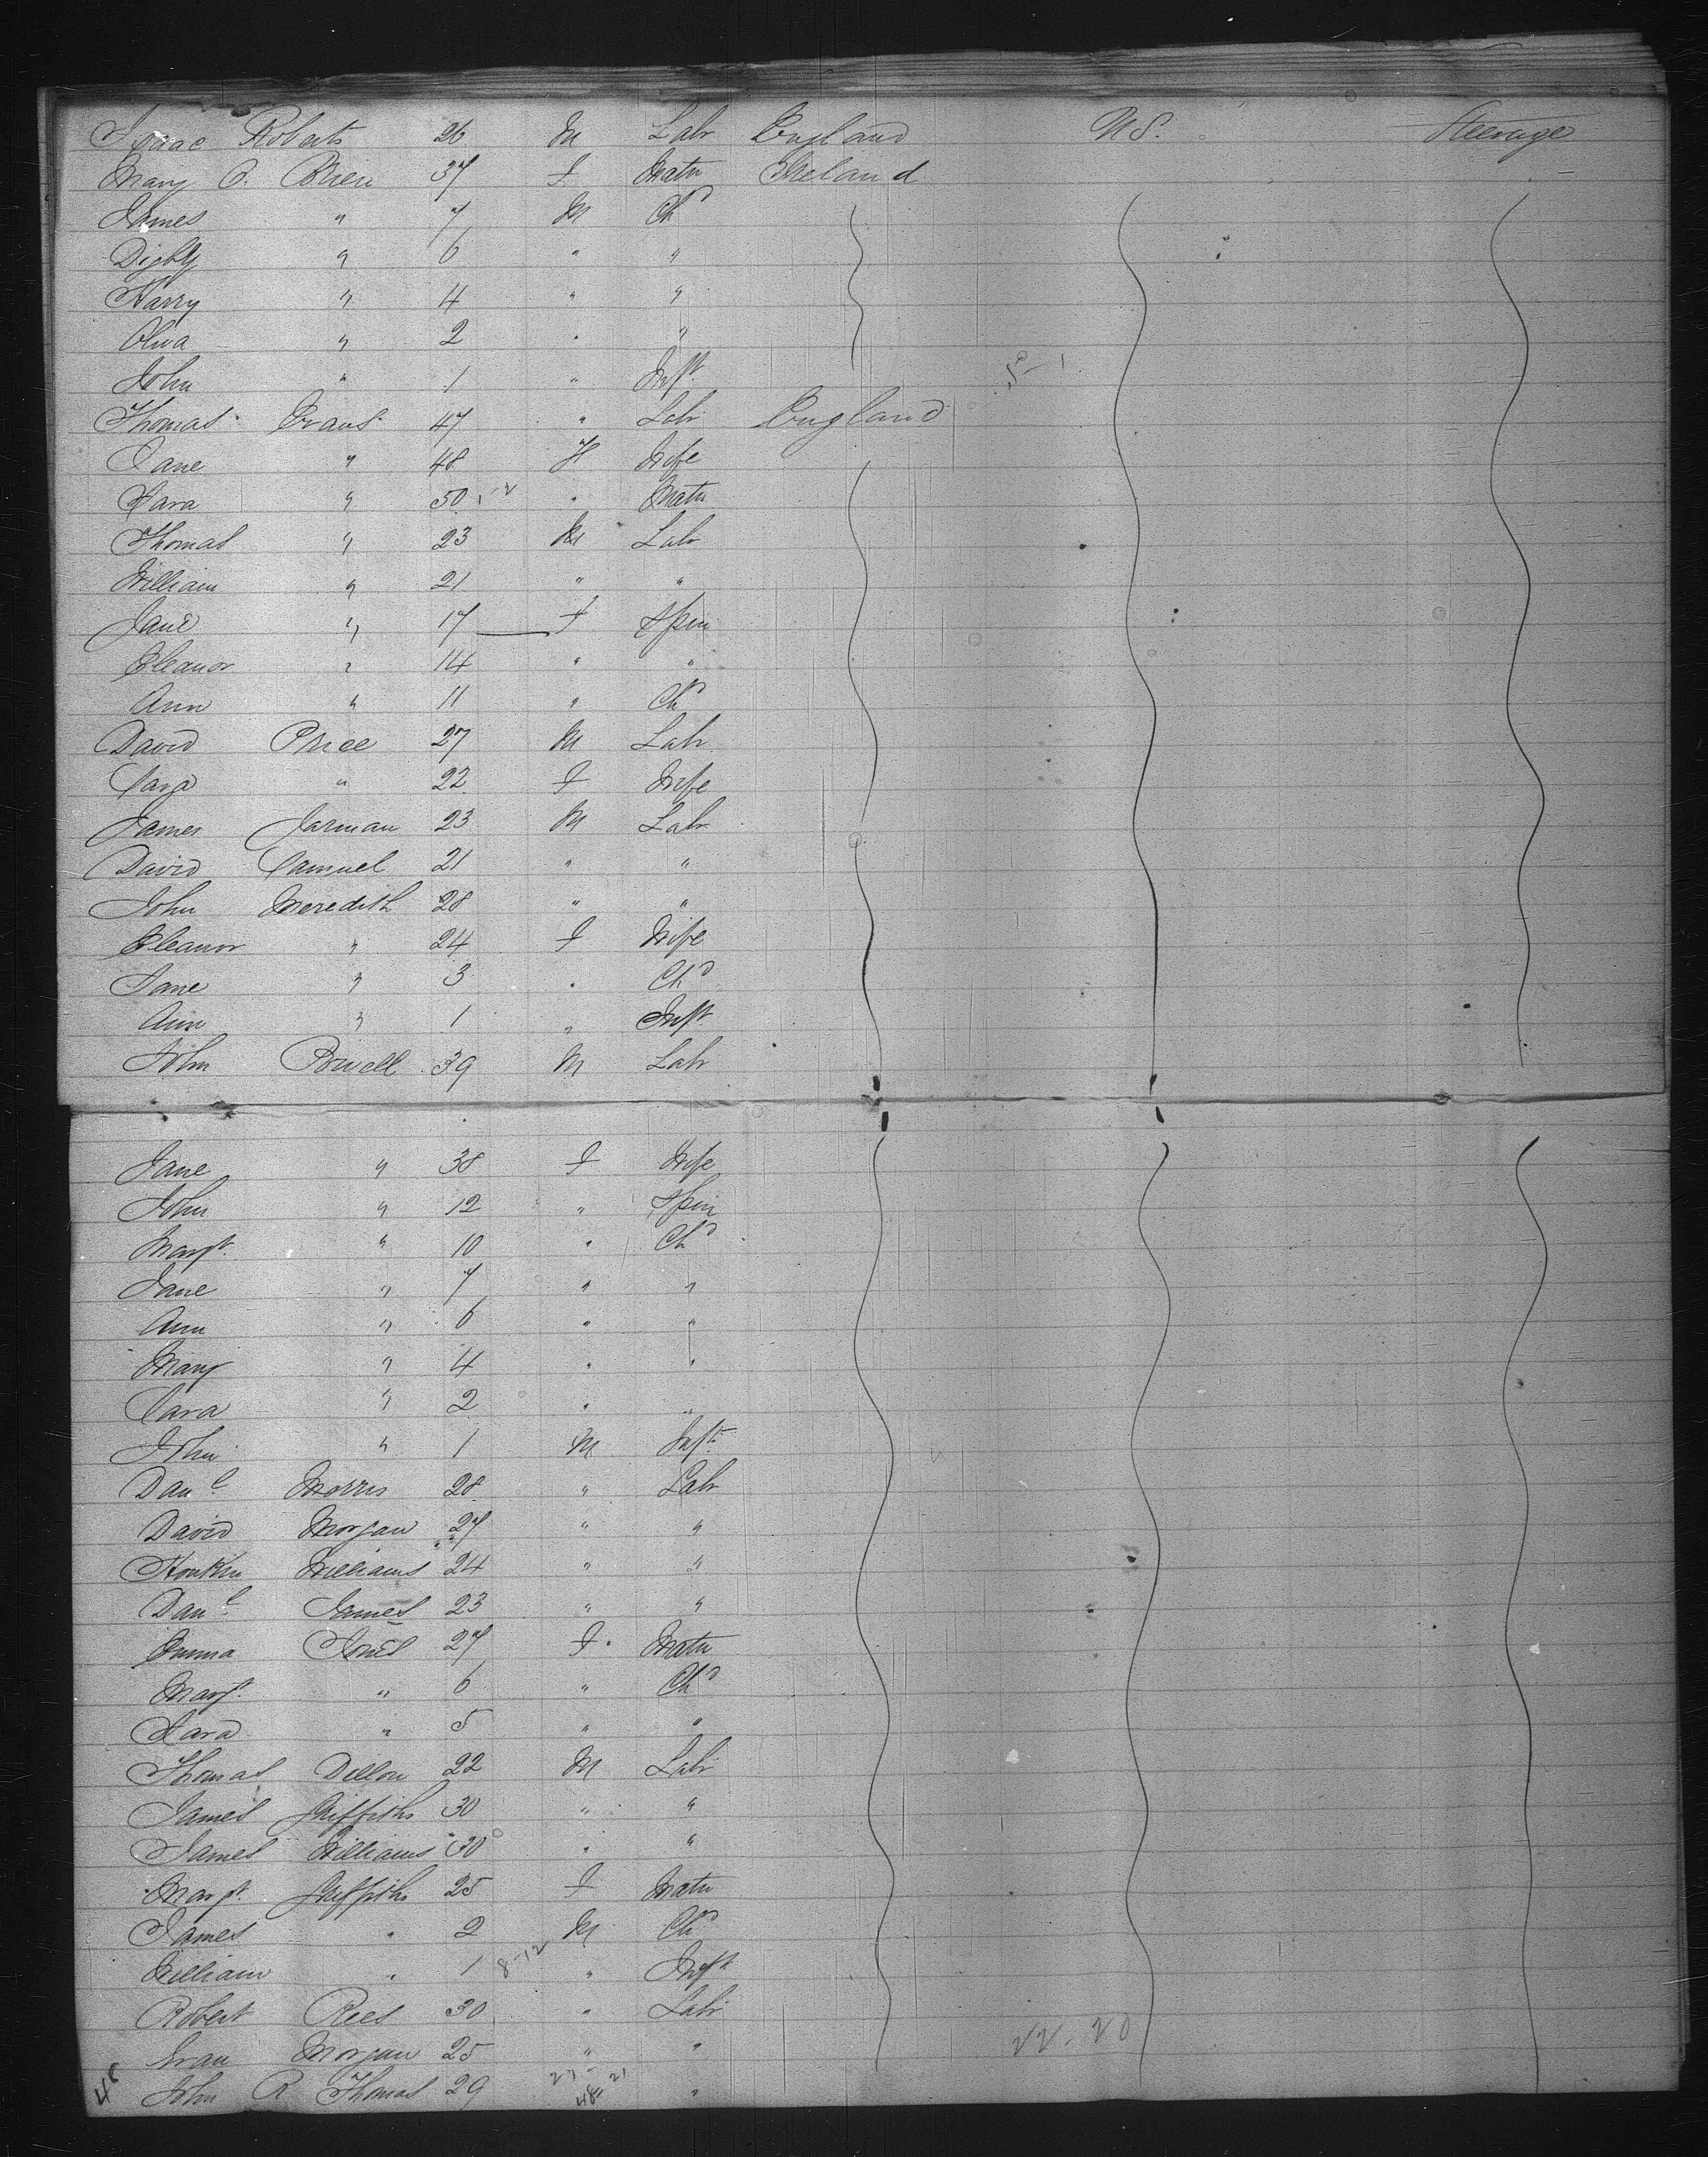 Isaac Roberts 26 M Labr England U.S. Steerage
Mary O. Brien 37 F Matn Ireland
James " 7 M Chd
Digby " 6 " "
Harry " 4 " "
Oliva " 2 " "
John " 1 " Inft
Thomas Evans 47 " Labr England
Jane " 48 F Wife
Sara " 50 " Matn
Thomas " 23 M Labr
William " 21 " "
Jane " 17 F Spin
Eleanor " 14 " "
Ann " 11 " Chd
David Price 27 M Labr
Sara " 22 F Wife
James Jarman 23 M Labr
David Samuel 21 " "
John Meredith 28 " "
Eleanor " 24 F Wife
Jane " 3 " Chd
Ann " 1 " Inft
John Powell 39 M Labr
Jane " 38 F Wife
John " 12 " Spin
Margt " 10 " Chd
Jane " 7 " "
Ann " 6 " "
Mary " 4 " "
Sara " 2 " "
John " 1 M Inft
Danl Morris 28 " Labr
David Morgan 27 " "
Williams 24 " "
Danl James 23 " "
Emma Jones 27 F Matn
Margt " 6 " Chd
Sara " 5 " "
Thomas Dillon 22 M Labr
James Griffiths 30 " "
James Williams 30 " "
Margt Griffiths 25 F Matn
James " 2 M Chd
William " 1 8-12 " Inft
Robert Rees 30 " Labr
Evan Morgan 25 " " 22-20
John R Thomas 29 48 "